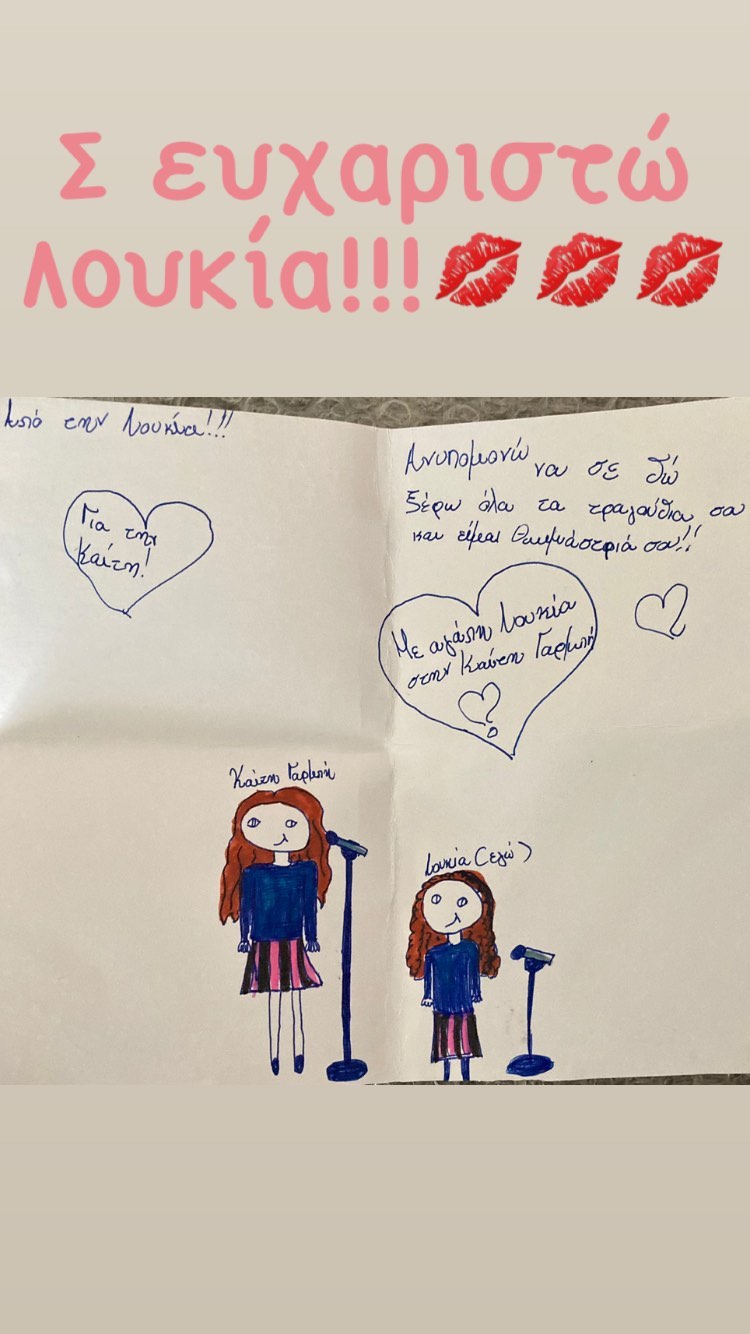 Σ ευχαριστώ
Λουκία!!!💋💋💋
Από την Λουκία!!!
Για την
Καίτη!
Ανυπομονώ να σε δώ
ξέρω όλα τα τραγούδια σου
και είμαι θαυμάστριά σου!!
Με αγάπη Λουκία
στην Καίτη Γαρμπή
Καίτη Γαρμπή
Λουκία (εγώ)